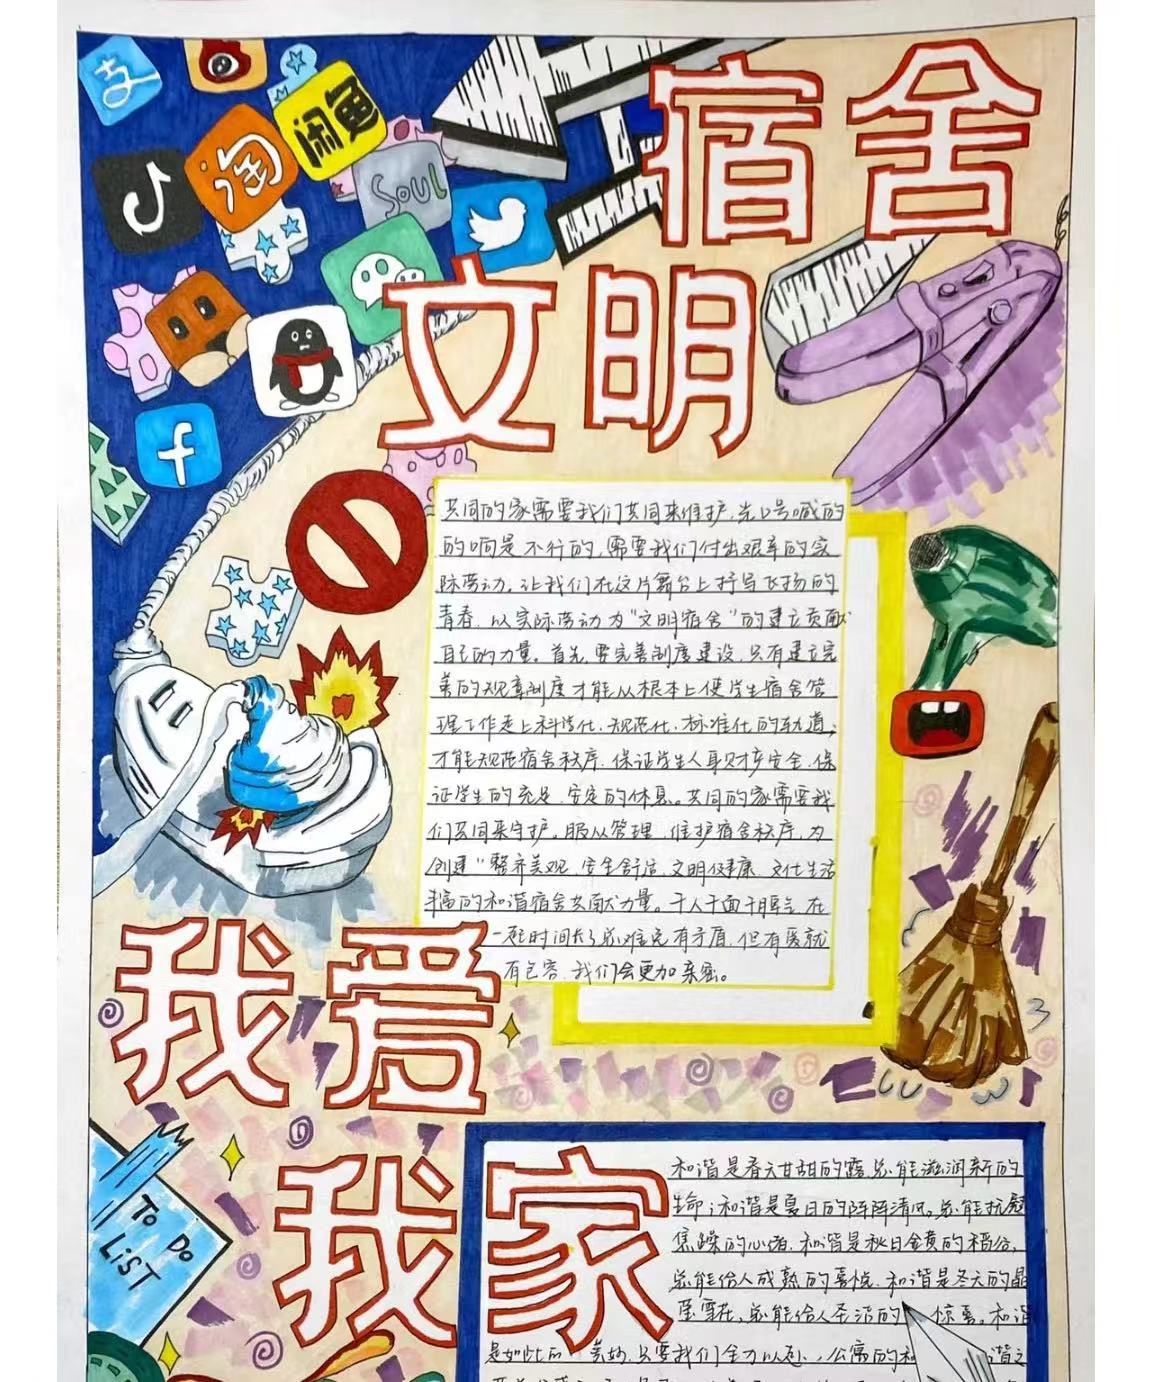 支
淘
闲鱼
SOUL
f
宿舍
文明
共同的家需要我们共同来维护，光口号喊的
的响是不行的，需要我们付出艰辛的实
际劳动。让我们在这片舞台上抒写飞扬的
青春，以实际劳动为"文明宿舍"的建立贡献
自己的力量。首先，要完善制度建设，只有建立完
善的规章制度才能从根本上使学生宿舍管
理工作走上科学化、规范化、标准化的轨道；
才能规范宿舍秩序，保证学生人身财产安全，保
证学生的充足、安定的休息。共同的家需要我
们共同来守护。服从管理，维护宿舍秩序，为
创建"整齐美观、安全舒适、文明健康、文化生活
丰富的和谐宿舍贡献力量。千人千面千脾气，在
一起时间长了总难免有矛盾，但有爱就
有包容，我们会更加亲密。
我爱
我家
TO DO
LIST
和谐是春天甘甜的露，总能滋润新的
生命；和谐是夏日的阵阵清风，总能抚慰
焦躁的心绪，和谐是秋日金黄的稻谷，
总能给人成熟的喜悦，和谐是冬天的晶
莹雪花，总能给人圣洁的惊喜。和谐
是如此的美好，只要我们全力以赴，公寓的和谐之